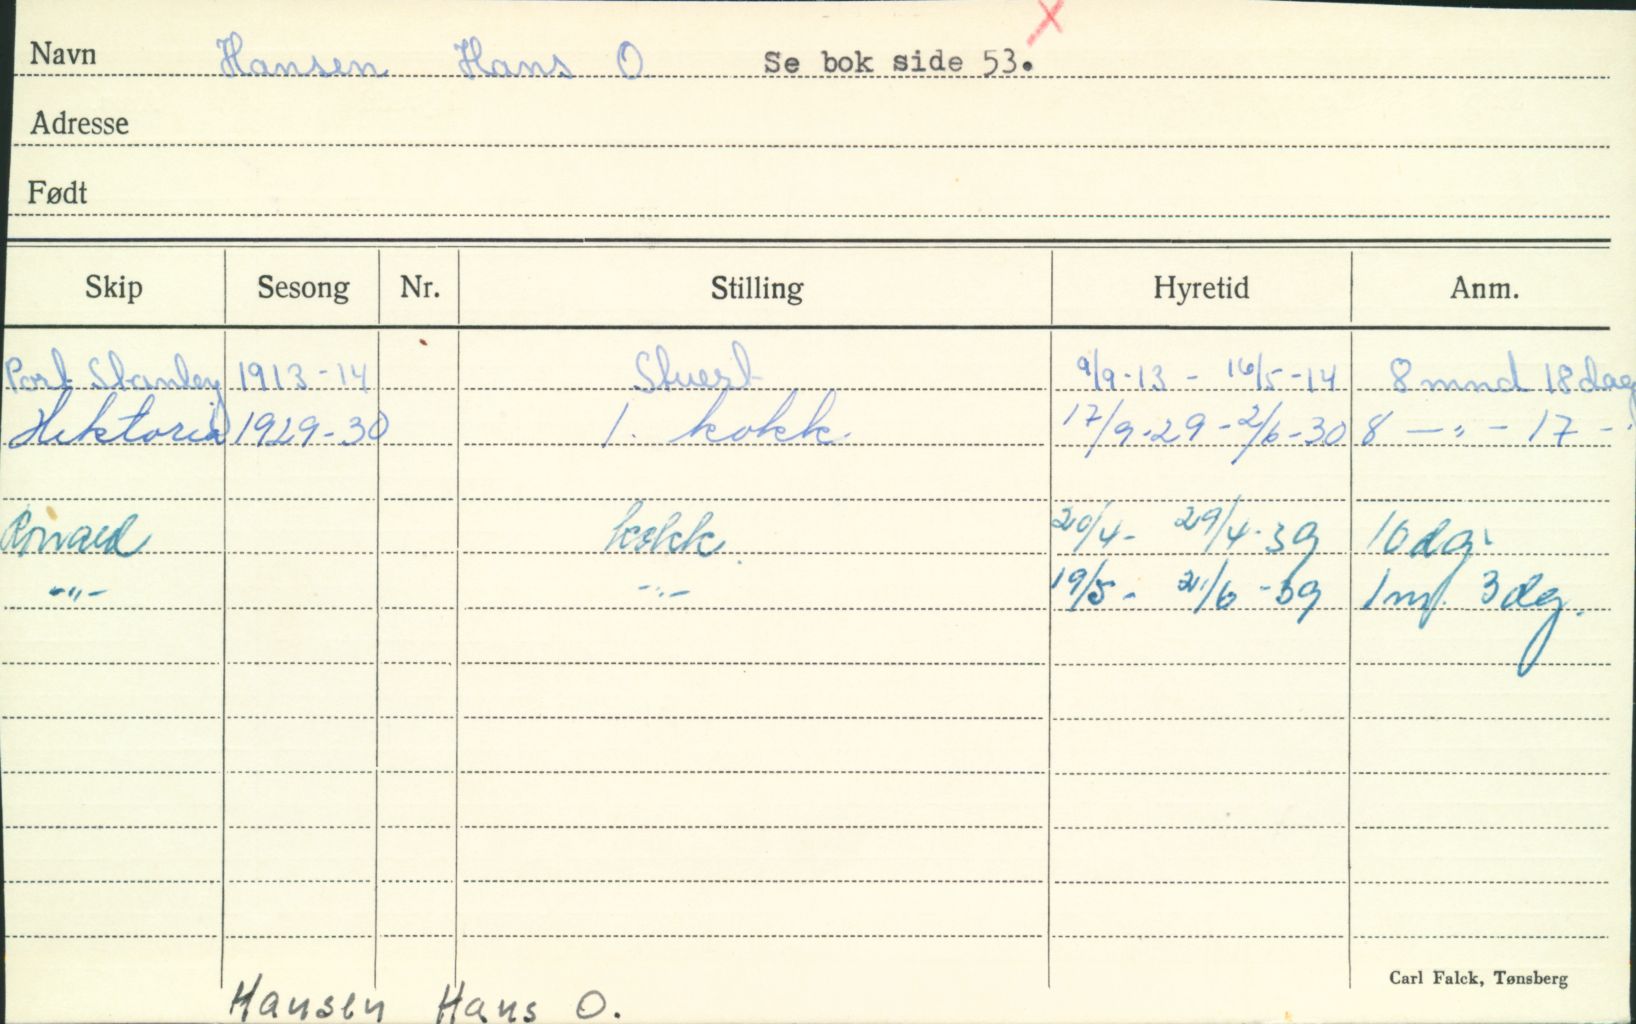 Navn Hansen Hans O Se bok side 53. X
Adresse
Født
Skip Sesong Nr. Stilling Hyretid Anm.
Port Stanley 1913-14 Stuert 9/9-13 - 16/5-14 8 mnd 18 dag
Hektoria 1929-30 1. kokk. 17/9-29 - 2/6-30 8 —„— 17 -„
Ronald kokk. 20/4- 29/4-39 10 dg.
-„- -„- 19/5- 21/6-39 1 m. 3 dg.
Carl Falck, Tønsberg
Hansen Hans O.